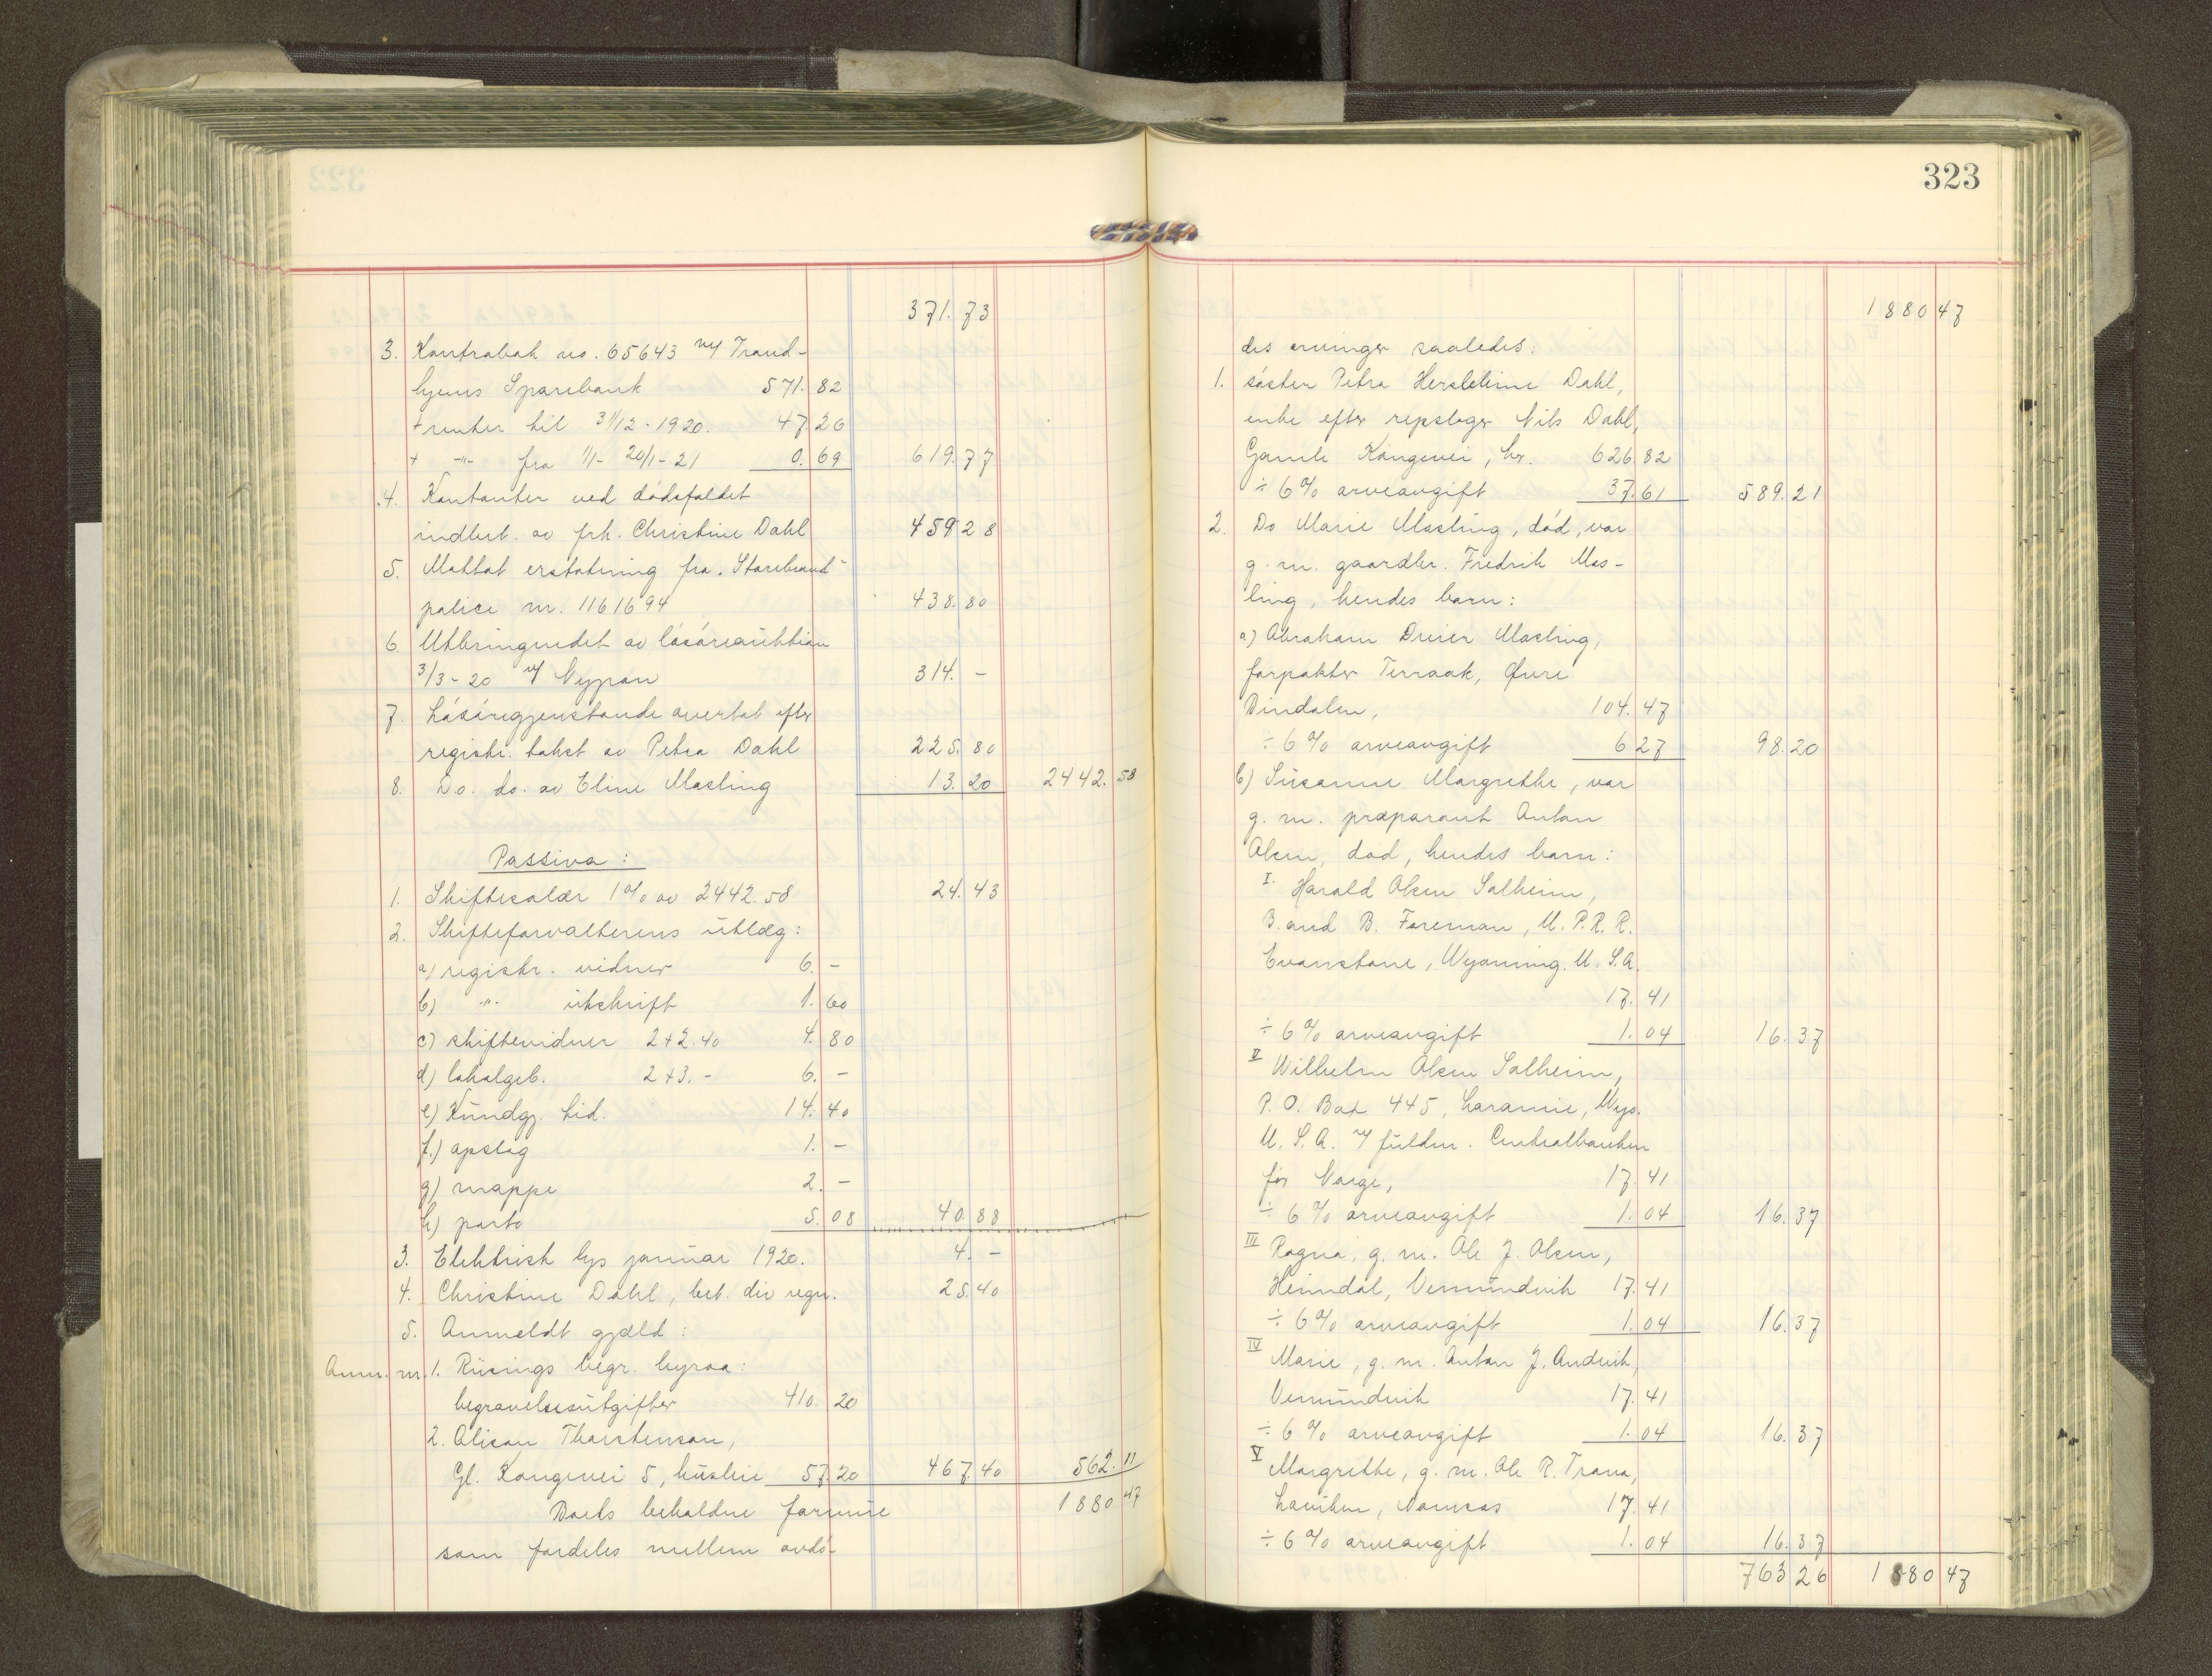 371.73
3. Kontrabok no. 65643 v/ Trond-
hjems Sparebank 571.82
+ renter til 31/12-1920. 47 26
+ -"- fra 1/1- 20/1-21 0.69 619.77
4. Kontanter ved dødsfaldet
indbet. av frk. Christine Dahl 459 28
5. Mottat erstatning fra "Storebrand"
police nr. 1161694 438.80
6. Utbringendet av løsøreauktion
3/3-20 v/ Nypan 314. -
7. Løsøregjenstande overtat efter
registr. takst av Petra Dahl 225.80
8. Do. do. av Eline Masling 13.20 2442.58
Passiva:
1. Skiftesalær 1% av 2442.58 24.43
2. Skifteforvalterens utlæg:
a) registr. vidner 6. -
b) -"- utskrift 1.60
c) skiftevidner 2+2.40 4.80
d) lokalgeb. 2+3.- 6. -
e) Kundgj. tid. 14.40
f.) opslag 1. -
g) mappe 2. -
h) porto 5.08 40.88
3. Elektrisk lys januar 1920. 4. -
4. Christine Dahl, bet. div regn. 25.40
5. Anmeldt gjæld:
Anm. nr. 1. Riisings begr. byraa:
begravelsesutgifter 410.20
2. Alison Thorstenson,
Gl. Kongevei 5, husleie 57.20 467.40 562.11
Boets beholdne formue 1880 47
som fordeles mellem avdø-
323
1880 47
des arvinger saaledes:
1. søster Petra Hersleline Dahl,
enke efter repslager Nils Dahl,
Gamle Kongevei, her. 626.82
÷ 6% arveavgift 37.61 589.21
2. Do Marie Masling, død, var
g. m. gaardbr. Fredrik Mas-
ling, hendes barn:
a) Abraham Dreier Masling,
forpakter Terraak, Øvre
Bindalen, 104.47
÷ 6% arveavgift 6 27 98.20
b) Susanne Margrethe, var
g. m. præparant Anton
Olsen, død, hendes barn:
I. Harald Olsen Solheim,
B. and B. Foreman, U. P. R. R.
Evanstone, Wyoming. U. S. A.
17.41
÷ 6% arveavgift 1.04 16.37
II Wilhelm Olsen Solheim,
P. O. Box 445, Laramie, Wyo.
U. S. A. v/ fuldm. Centralbanken
for Norge, 17.41
÷ 6% arveavgift 1.04 16.37
III Ragna, g. m. Ole J. Olsen,
Heimdal, Vemundvik 17.41
÷ 6% arveavgift 1.04 16.37
IV Marie, g. m. Anton J. Andvik,
Vemundvik 17.41
÷ 6% arveavgift 1.04 16.37
V Margrethe, g. m. Ole R. Trana,
Namsos 17.41
÷ 6% arveavgift 1.04 16.37
763 26 1880 47